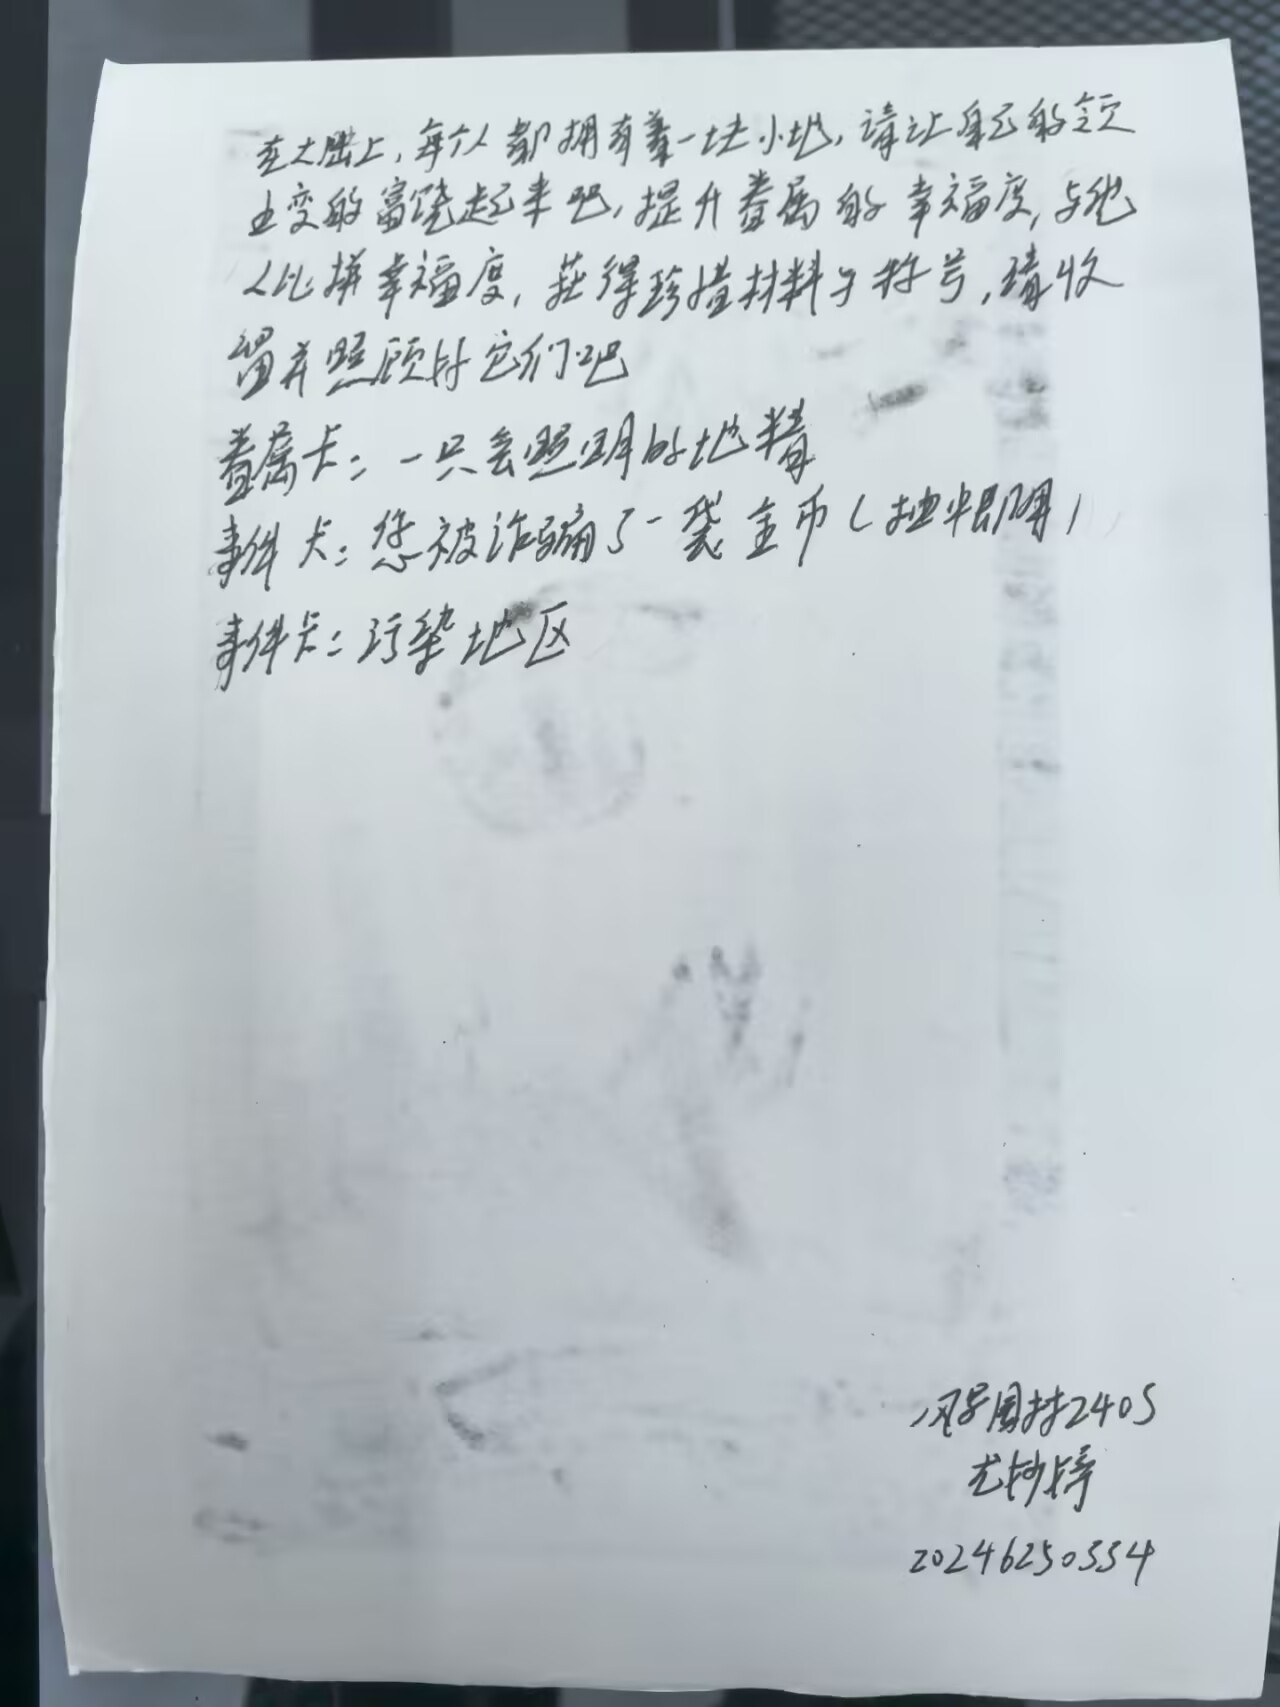 在大陆上，每个人都拥有着一块小地，请让自己的领
土变的富饶起来吧，提升眷属的幸福度，与他
人比拼幸福度，获得珍惜材料与称号，请收
留并照顾好它们吧
眷属卡：一只会照明的地精
事件卡：您被诈骗了一袋金币（抽中即用）
事件卡：污染地区
风景园林2405
尤妙婷
20246250554